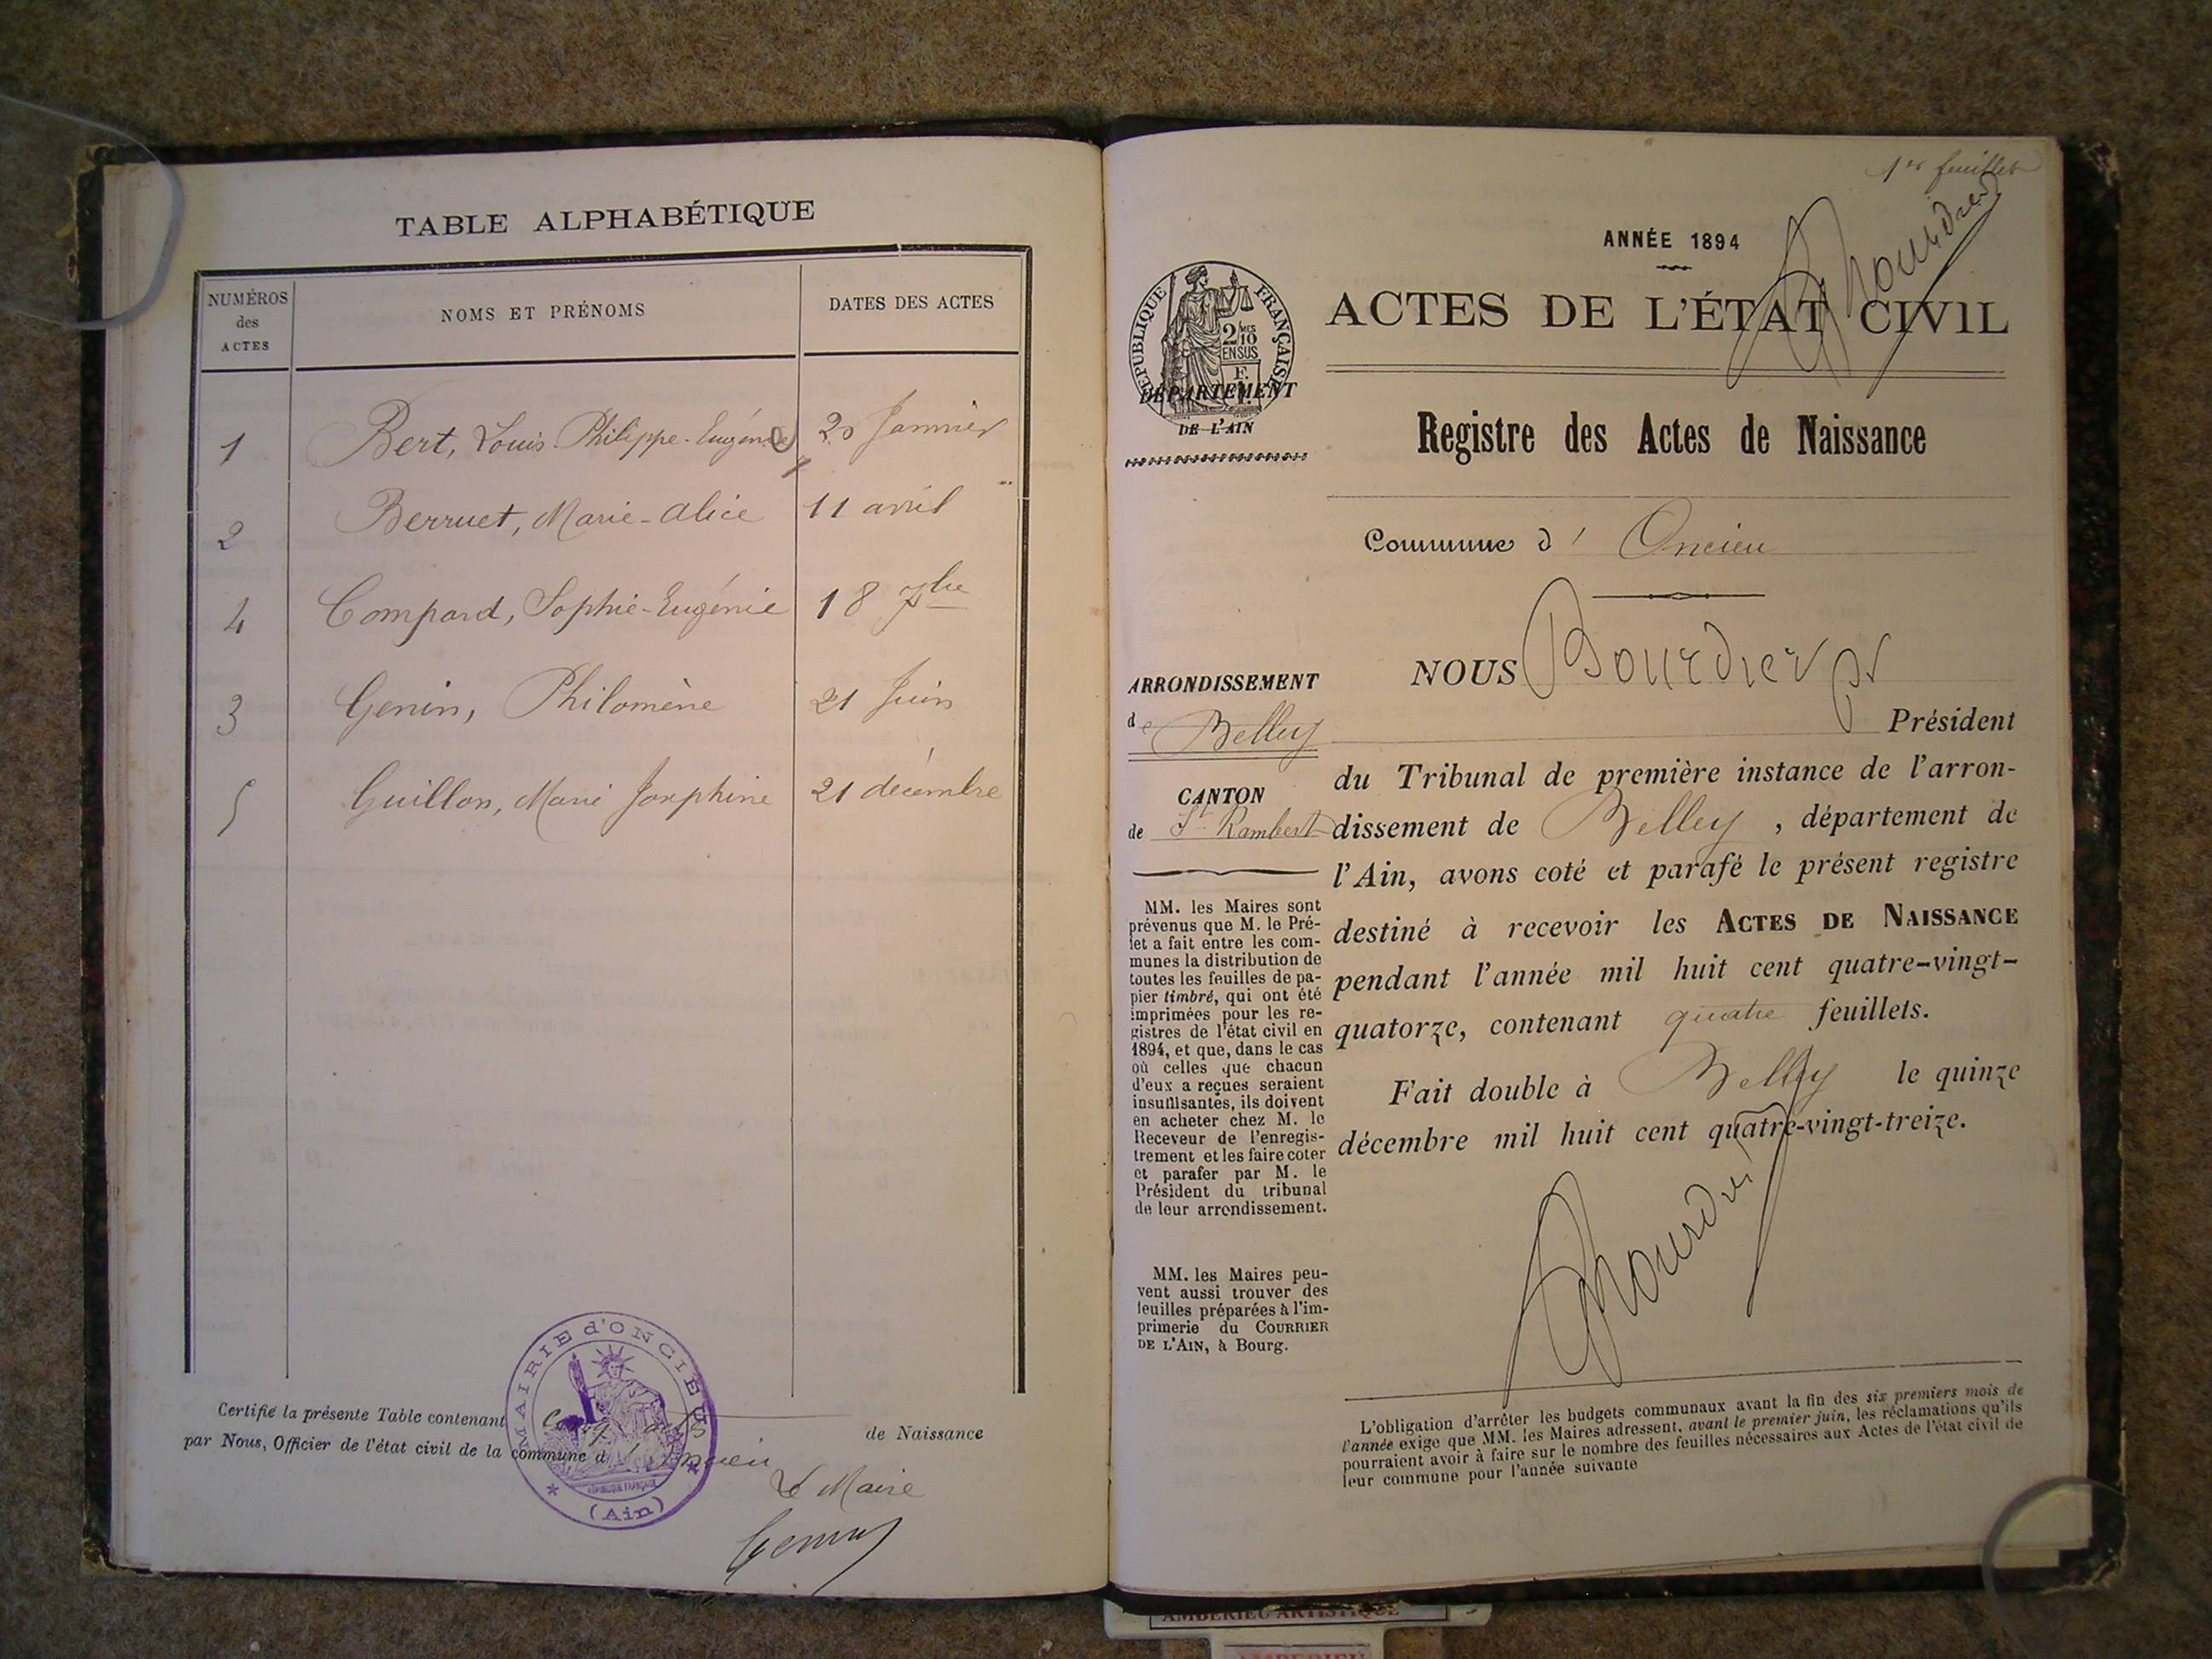 TABLE ALPHABÉTIQUE
NUMÉROS
des
ACTES
NOMS ET PRÉNOMS
DATES DES ACTES
1 Bert, Louis Philippe-Eugène 20 Janvier
2 Berruet, Marie-Alice 11 avril
4 Compard, Sophie-Eugénie 18 7bre
3 Genin, Philomène 21 Juin
5 Guillon, Marie Josephine 21 décembre
Certifié la présente Table contenant cinq actes de Naissance
par Nous, Officier de l'état civil de la commune d' Oncieu
Le Maire
Genin
MAIRIE d'ONCIEU
RÉPUBLIQUE FRANÇAISE
(Ain)
1er feuillet
Bourdier
ANNÉE 1894
ACTES DE L'ÉTAT CIVIL
RÉPUBLIQUE FRANÇAISE
2/10 MES
EN SUS
DÉPARTEMENT
DE L'AIN
Registre des Actes de Naissance
Commune d' Oncieu
ARRONDISSEMENT
de Belley
CANTON
de St Rambert
MM. les Maires sont
prévenus que M. le Pré-
fet a fait entre les com-
munes la distribution de
toutes les feuilles de pa-
pier timbré, qui ont été
imprimées pour les re-
gistres de l'état civil en
1894, et que, dans le cas
où celles que chacun
d'eux a reçues seraient
insuffisantes, ils doivent
en acheter chez M. le
Receveur de l'enregis-
trement et les faire coter
et parafer par M. le
Président du tribunal
de leur arrondissement.
MM. les Maires peu-
vent aussi trouver des
feuilles préparées à l'im-
primerie du COURRIER
DE L'AIN, à Bourg.
NOUS Bourdier pr
Président
du Tribunal de première instance de l'arron-
dissement de Belley, département de
l'Ain, avons coté et parafé le présent registre
destiné à recevoir les ACTES DE NAISSANCE
pendant l'année mil huit cent quatre-vingt-
quatorze, contenant quatre feuillets.
Fait double à Belley le quinze
décembre mil huit cent quatre-vingt-treize.
Bourdier
L'obligation d'arrêter les budgets communaux avant la fin des six premiers mois de
l'année exige que MM. les Maires adressent, avant le premier juin, les réclamations qu'ils
pourraient avoir à faire sur le nombre des feuilles nécessaires aux Actes de l'état civil de
leur commune pour l'année suivante
AMBERIEU ARTISTIQUE
AMBERIEU